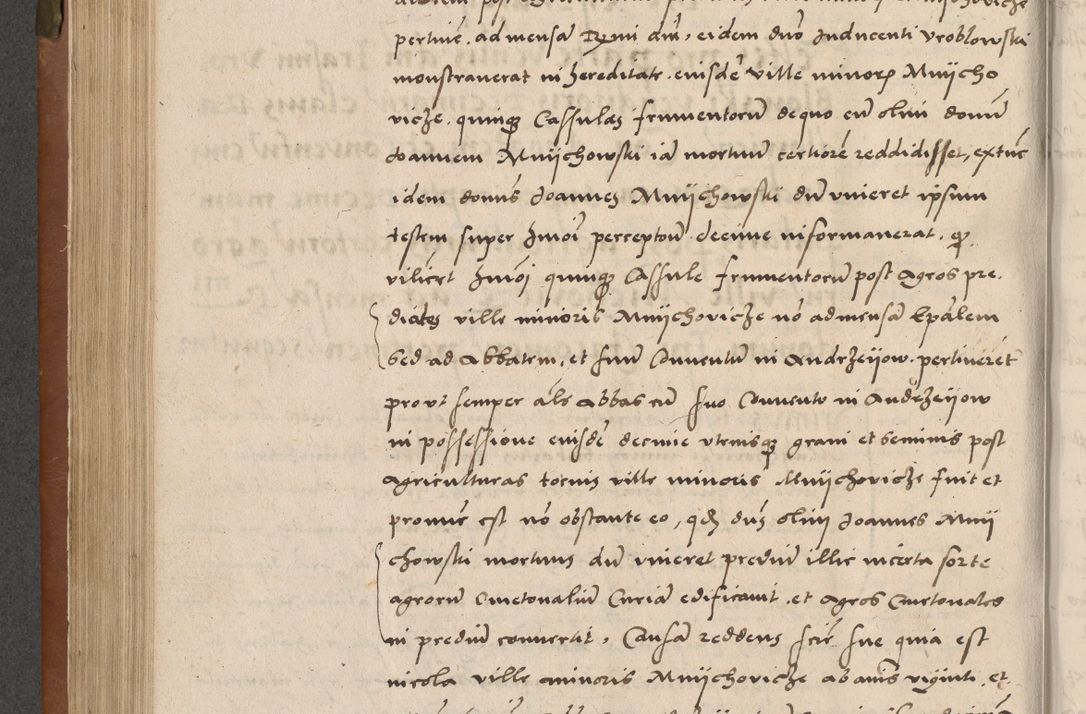 pertine. ad mensã Rxmi dm̃, eidem dnõ Inducenti Vroblowski
monstraverat in hereditate eiusdẽ ville minorꝫ Mnijcho
vicze. quinqꝫ Cassulas frumentorũ de quo eũ olim domũ
Joannem Mnijchowski iã mortuũ certiorẽ reddidisset, extũc
idem domũs Joannes Mnijchowski dũ viueret ipsum
testem super hmõi perceptoũ decime informauerat. qꝫ
vilicet hmõi quinqꝫ Cassule frumentorũ post Agros pre.
diales ville minoris Mnijchovicze nõ ad mensã Epãlem
Sed ad Abbatem, et suũ Conuentũ in Andrzeijow. pertineret
prout semper als Abbas cũ suo Conuento in Andrzeijow
in possessione eiusdẽ decime vtriusqꝫ grani et seminis post
Agriculturas totius ville minoris Mnijchovicze fuit et
pronũc est nõ obstante eo, qd dns olim Joannes Mnij
chowski mortuus dũ viueret prediũ illic incerta sorte
agrorũ Cmetonaliũ Curiã edificauit. et agros Cmetonales
in prediũ conuertit, Causã reddens sciẽ sue quia est
nicola ville minoris Mnijchovicze ab annis viginti, et